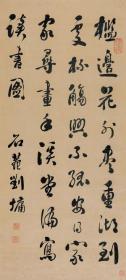 檻邊花外盡重湖到
處杯觴興不孤安得家
家尋畫手溪堂遍寫
讀書圖 石菴劉墉